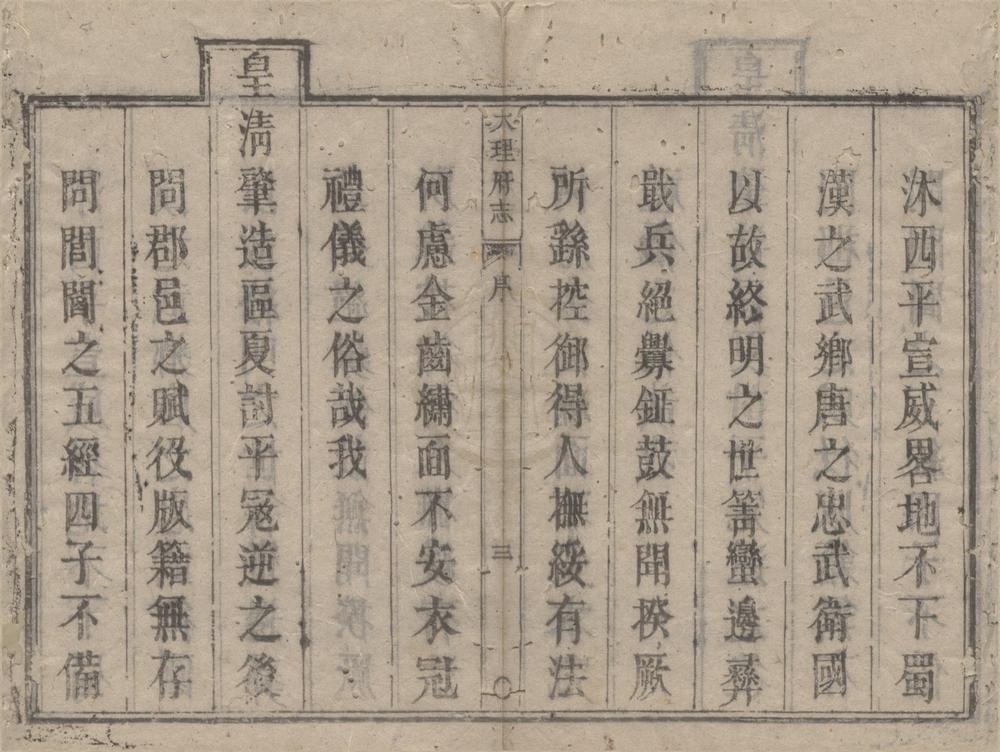 沐西平宣威畧地不下蜀
漢之武鄉唐之忠武衛國
以故終明之世籌蠻邊彝
戢兵絕釁鉦鼓無聞揆厥
所繇控御得人撫綏有法
大理府志 序 三
何慮金齒繡面不安衣冠
禮儀之俗哉我
皇清肇造區夏討平冦逆之後
問郡邑之賦役版籍無存
問閭閻之五經四子不備